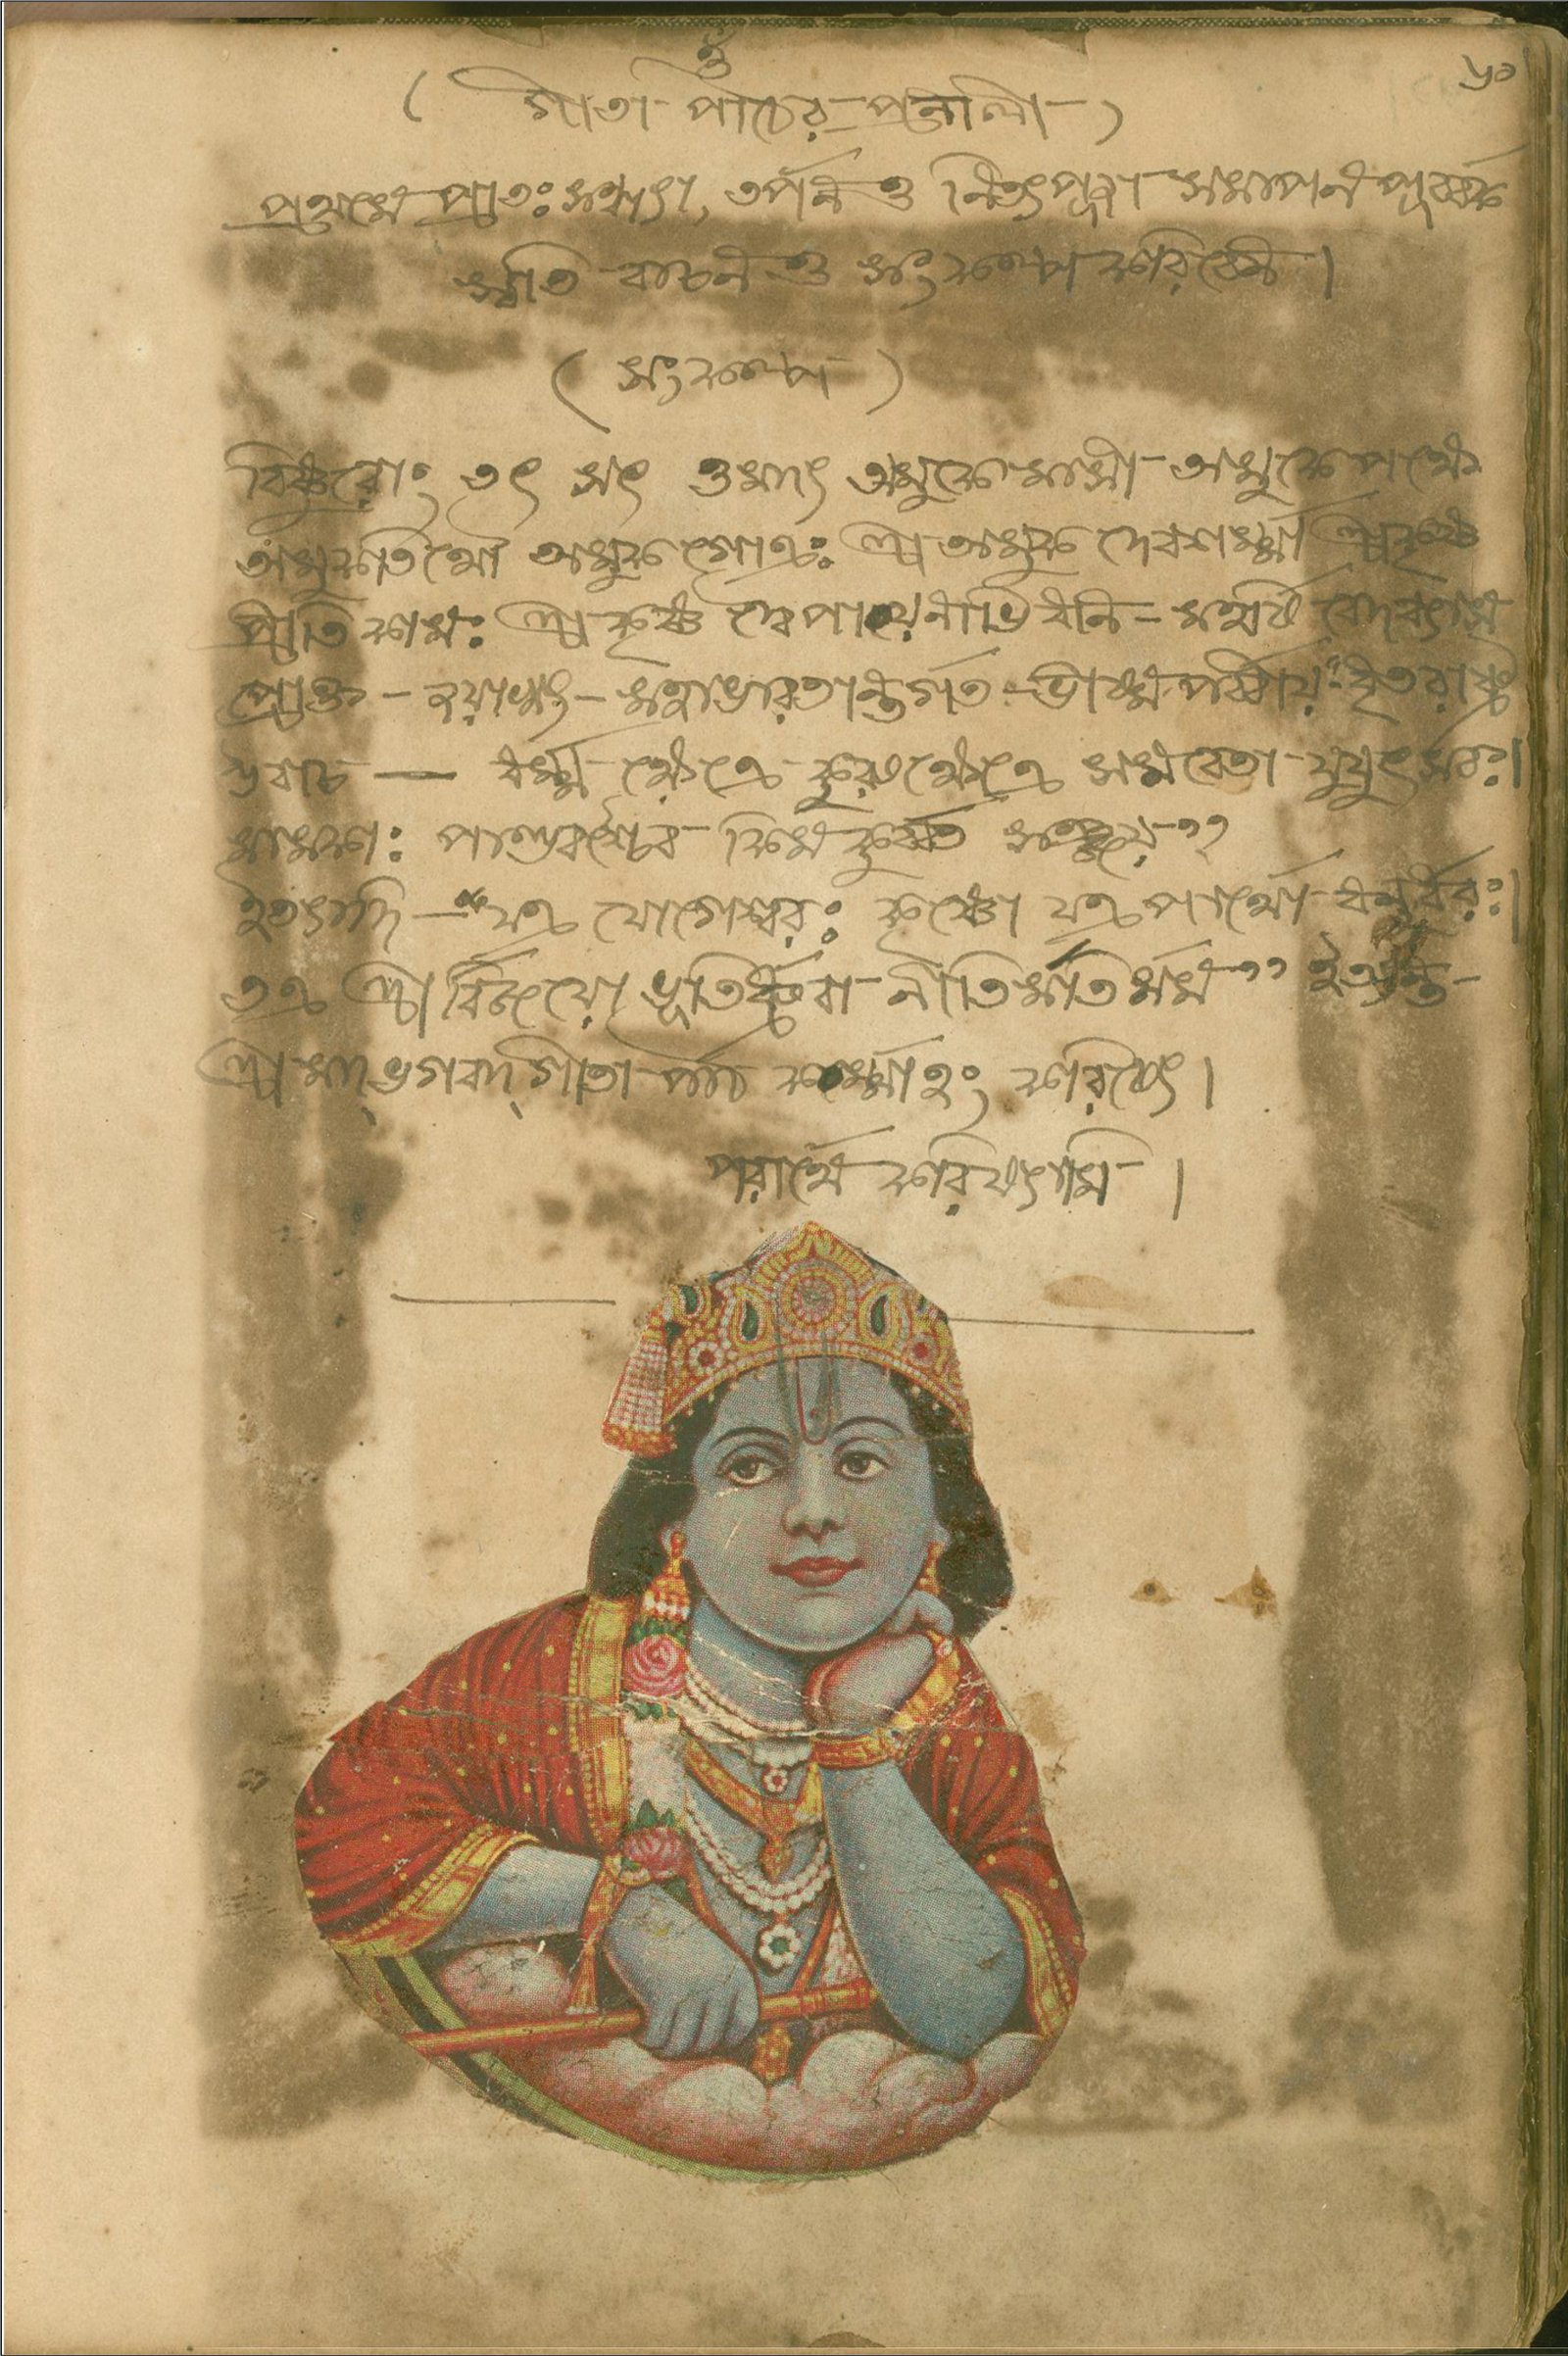 ওঁ
৬০
( গীতা পাঠের প্রনালী )
প্রথমে প্রাতঃসন্ধ্যা, তর্পন ও নিত্যপূজা সমাপন পূর্ব্বক
স্বস্তি বাচন ও সংকল্প করিবে।
( সংকল্প )
বিষ্ণুরোং তৎ সৎ ওমদ্য অমুকে মাসী অমুকে পক্ষে
অমুকতিথৌ অমুক গোত্রঃ শ্রী অমুক দেবশর্ম্মা শ্রীকৃষ্ণ
প্রীতি কামঃ শ্রীকৃষ্ণ দ্বৈপায়নাভিধান - মহর্ষি বেদব্যাস
প্রোক্ত - জয়াখ্য - মহাভারতান্তর্গত - ভীষ্ম পর্ব্বীয় "ধৃতরাষ্ট্র
উবাচ — ধর্ম্ম ক্ষেত্রে কুরুক্ষেত্রে সমবেতা যুযুৎসবঃ।
মামকাঃ পাণ্ডবাশ্চৈব কিমকুর্ব্বত সঞ্জয়"
ইত্যাদি — "যত্র যোগেশ্বরঃ কৃষ্ণো যত্র পার্থো ধনুর্ধরঃ।
তত্র শ্রীর্বিজয়ো ভূতির্ধ্রুবা নীতির্মতির্মম" ইত্যন্ত -
শ্রীমদ্ভগবদ্গীতা পাঠ কর্ম্মাহং করিষ্যে।
পরার্থে করিষ্যামি।